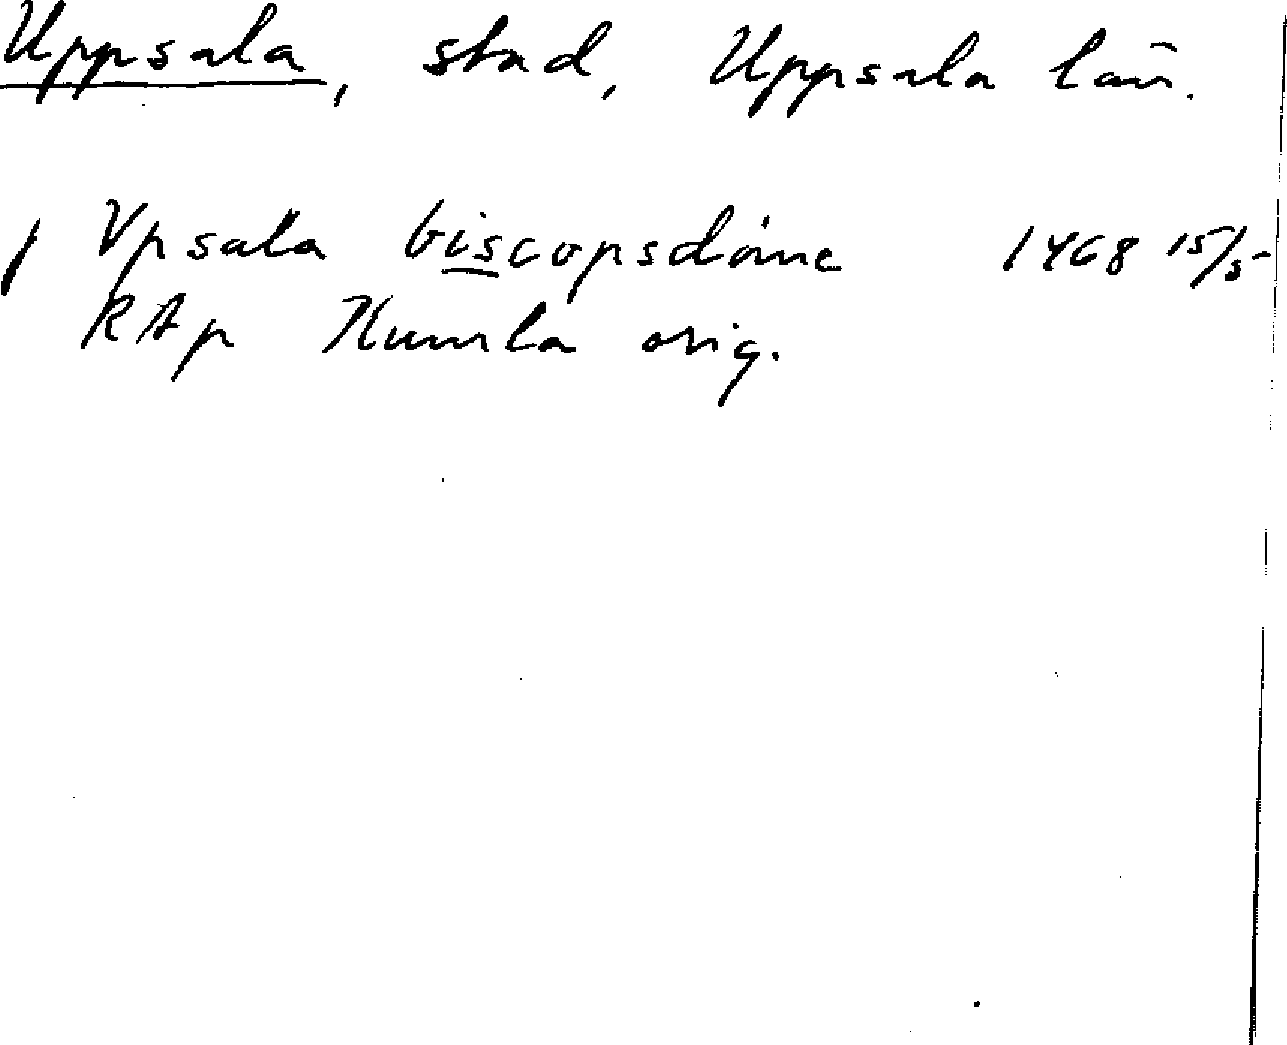 Uppsala, stad, Uppsala län.
j Vpsala biscopsdóme 1468 15/5
RAp Humla orig.